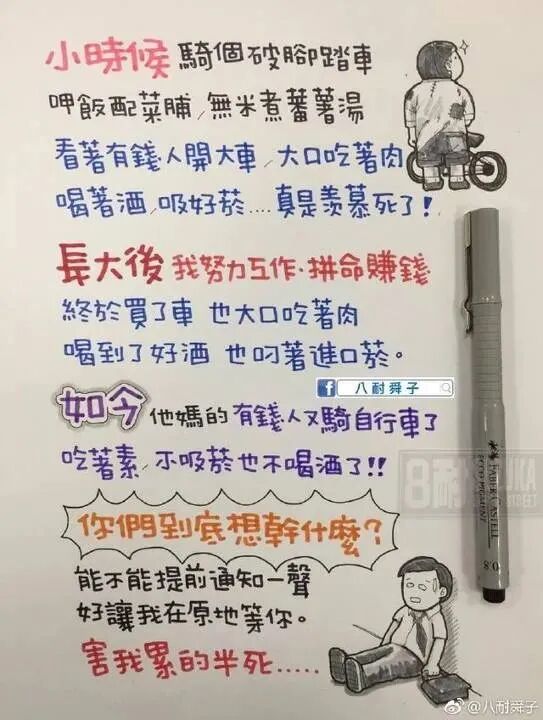 小時候 騎個破腳踏車
呷飯配菜脯，無米煮蕃薯湯
看著有錢人開大車，大口吃著肉
喝著酒，吸好菸....真是羨慕死了!
長大後 我努力工作.拼命賺錢
終於買了車 也大口吃著肉
喝到了好酒 也叼著進口菸。
f 八耐舜子
如今 他媽的有錢人又騎自行車了
吃著素，不吸菸也不喝酒了!!
你們到底想幹什麼?
能不能提前通知一聲
好讓我在原地等你。
害我累的半死.....
FABER-CASTELL
ECCO PIGMENT
0.8
8耐
@八耐舜子